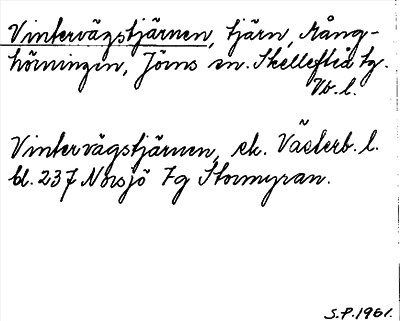 Vintervägstjärnen, tjärn, Mång-
hörningen, Jörns sn. Skellefteå tg.
Vb. l.
Vintervägstjärnen, ek. Västerb. l.
bl. 237 Norsjö 7g Stormyran.
S.P. 1961.